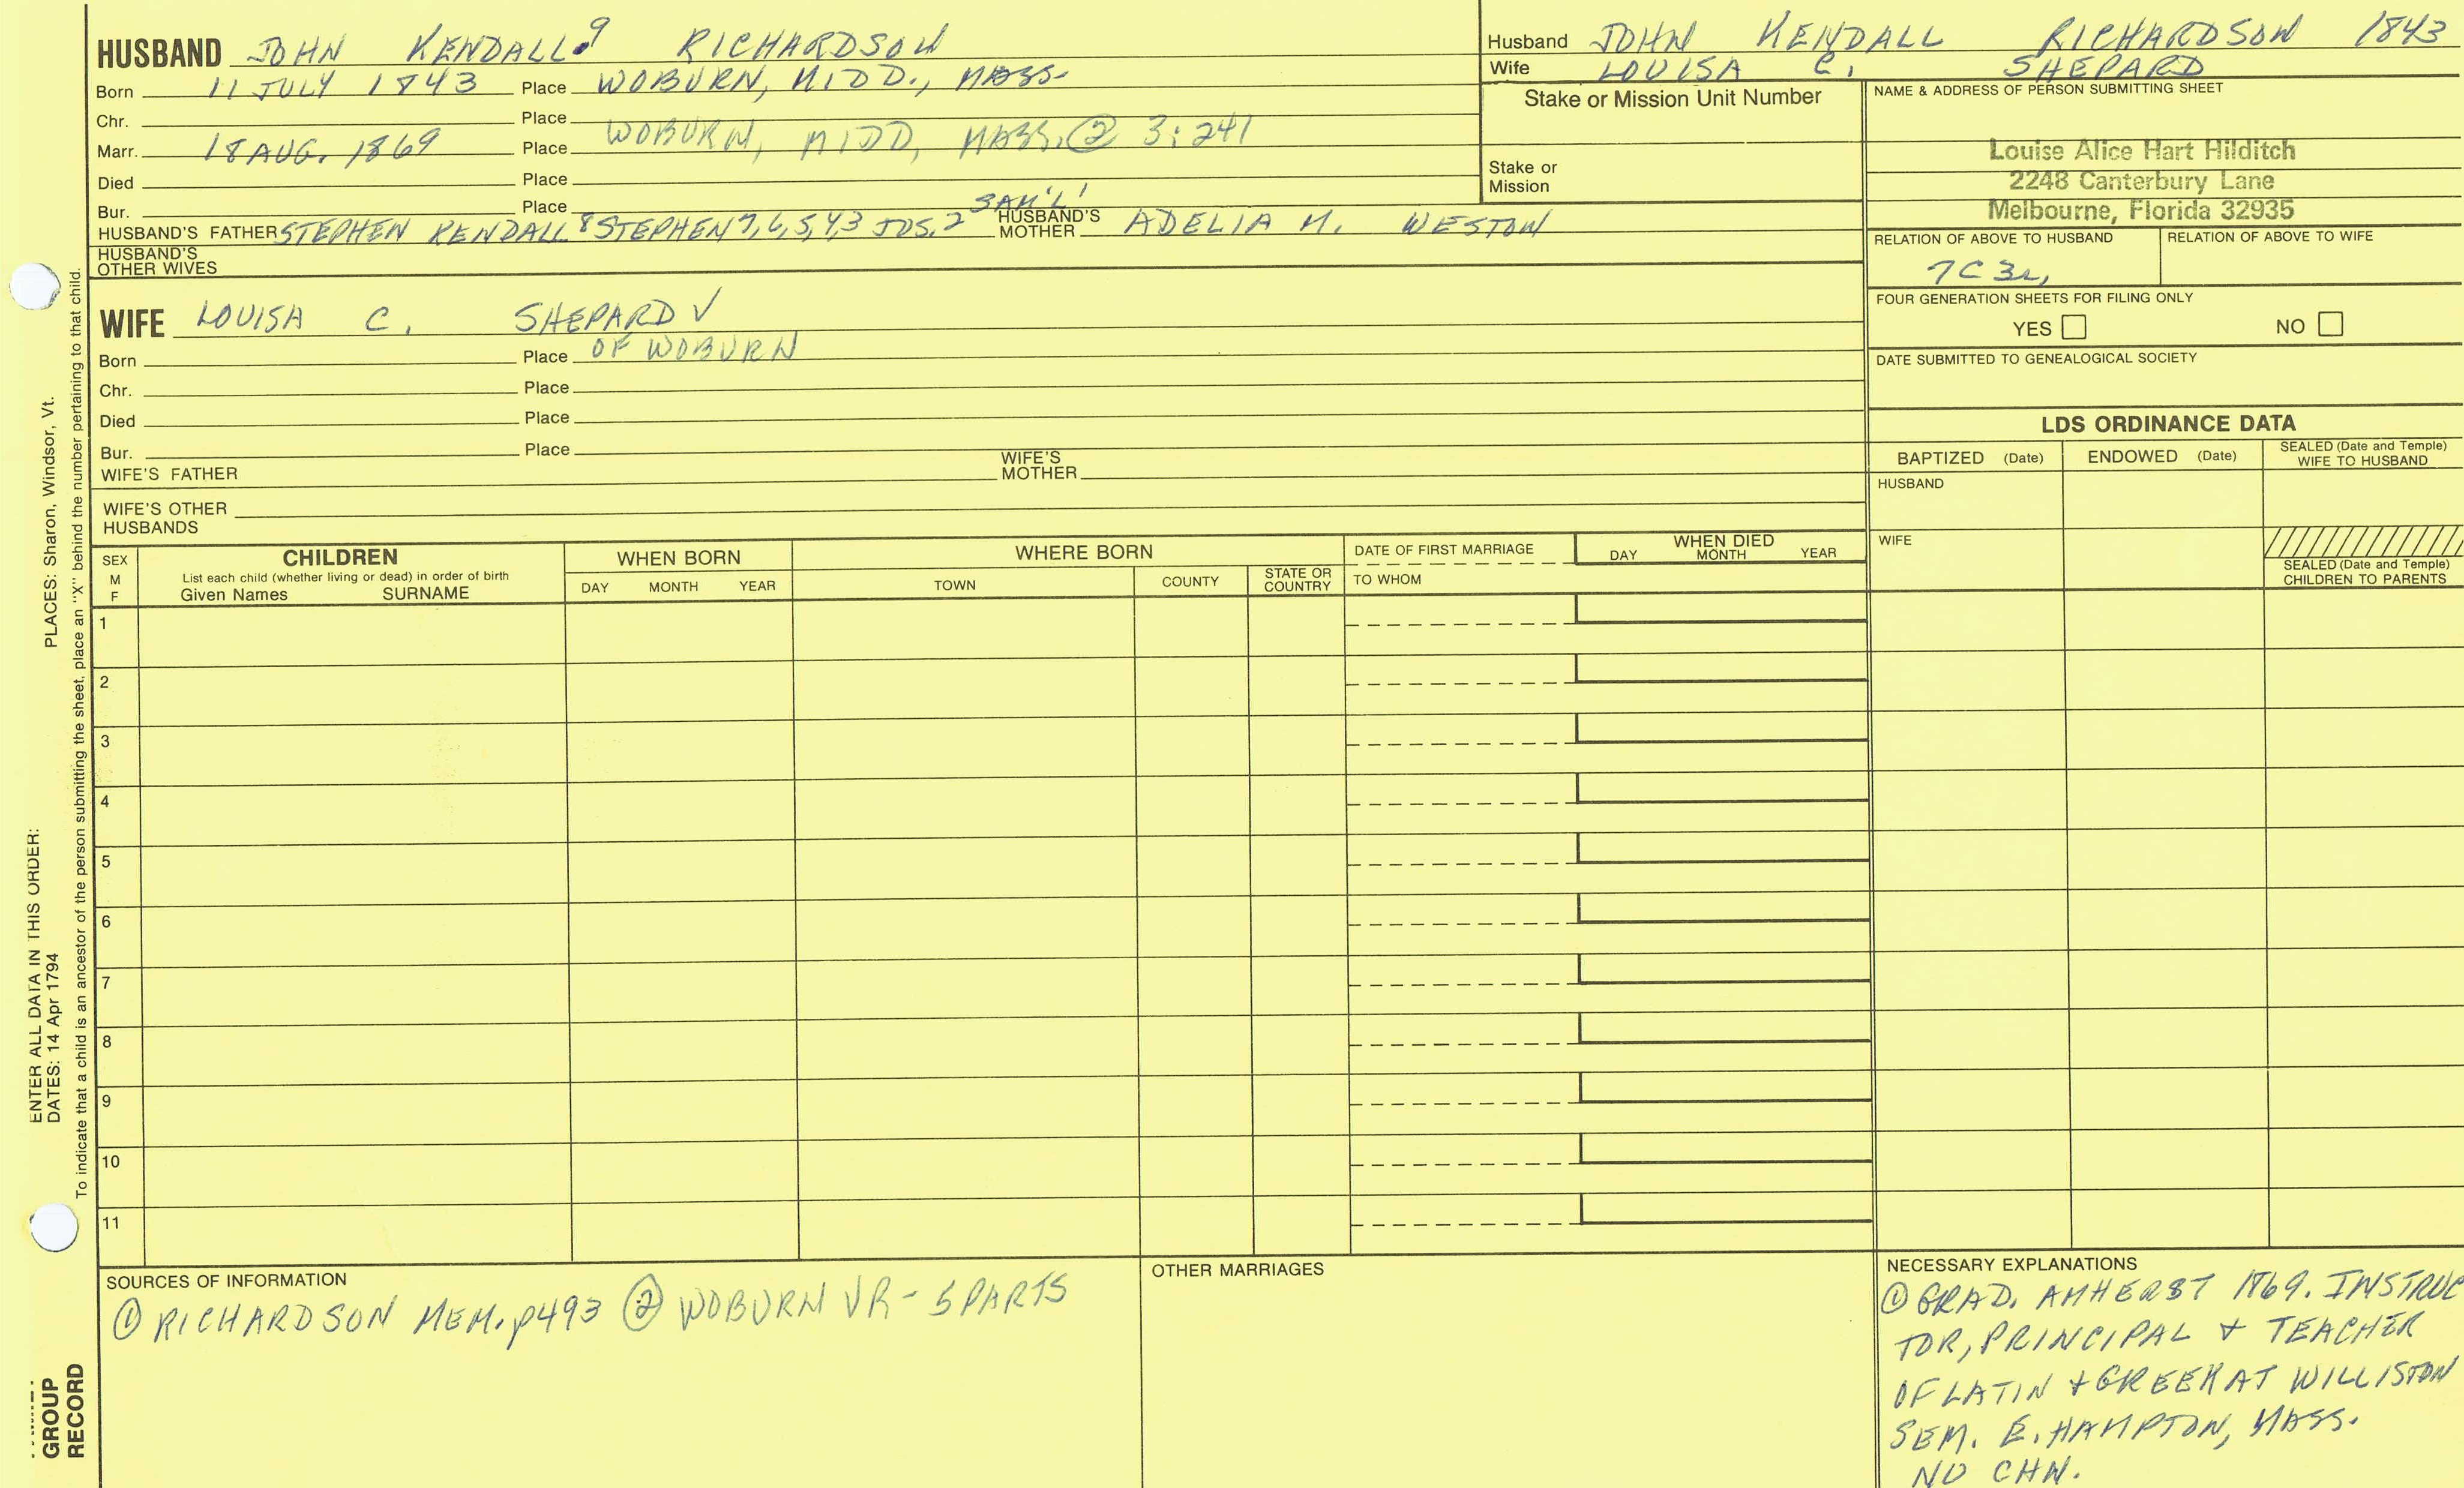 HUSBAND JOHN KENDALL 9 RICHARDSON
Born 11 JULY 1843 Place WOBURN, MIDD., MASS.
Chr. Place
Marr. 18 AUG. 1869 Place WOBURN, MIDD, MASS. ② 3:241
Died Place
Bur. Place
HUSBAND'S FATHER STEPHEN KENDALL 8 STEPHEN 7,6,5,4,3 JOS.2 SAM'L1 HUSBAND'S MOTHER ADELIA M. WESTON
HUSBAND'S OTHER WIVES
WIFE LOUISA C. SHEPARD ✓
Born Place OF WOBURN
Chr. Place
Died Place
Bur. Place
WIFE'S FATHER WIFE'S MOTHER
WIFE'S OTHER HUSBANDS
Husband JOHN KENDALL RICHARDSON 1843
Wife LOUISA C. SHEPARD
Stake or Mission Unit Number
Stake or Mission
NAME & ADDRESS OF PERSON SUBMITTING SHEET
Louise Alice Hart Hilditch
2248 Canterbury Lane
Melbourne, Florida 32935
RELATION OF ABOVE TO HUSBAND RELATION OF ABOVE TO WIFE
7C 3r,
FOUR GENERATION SHEETS FOR FILING ONLY
YES NO
DATE SUBMITTED TO GENEALOGICAL SOCIETY
LDS ORDINANCE DATA
BAPTIZED (Date) ENDOWED (Date) SEALED (Date and Temple) WIFE TO HUSBAND
HUSBAND
WIFE
SEALED (Date and Temple) CHILDREN TO PARENTS
SEX M F
CHILDREN
List each child (whether living or dead) in order of birth
Given Names SURNAME
WHEN BORN
DAY MONTH YEAR
WHERE BORN
TOWN COUNTY STATE OR COUNTRY
DATE OF FIRST MARRIAGE
TO WHOM
WHEN DIED
DAY MONTH YEAR
1
2
3
4
5
6
7
8
9
10
11
SOURCES OF INFORMATION
① RICHARDSON MEM. p493 ② WOBURN VR - 5 PARTS
OTHER MARRIAGES
NECESSARY EXPLANATIONS
① GRAD. AMHERST 1869. INSTRUC
TOR, PRINCIPAL + TEACHER
OF LATIN + GREEK AT WILLISTON
SEM. E. HAMPTON, MASS.
NO CHN.
PLACES: Sharon, Windsor, Vt.
ENTER ALL DATA IN THIS ORDER:
DATES: 14 Apr 1794
To indicate that a child is an ancestor of the person submitting the sheet, place an "X" behind the number pertaining to that child.
GROUP
RECORD